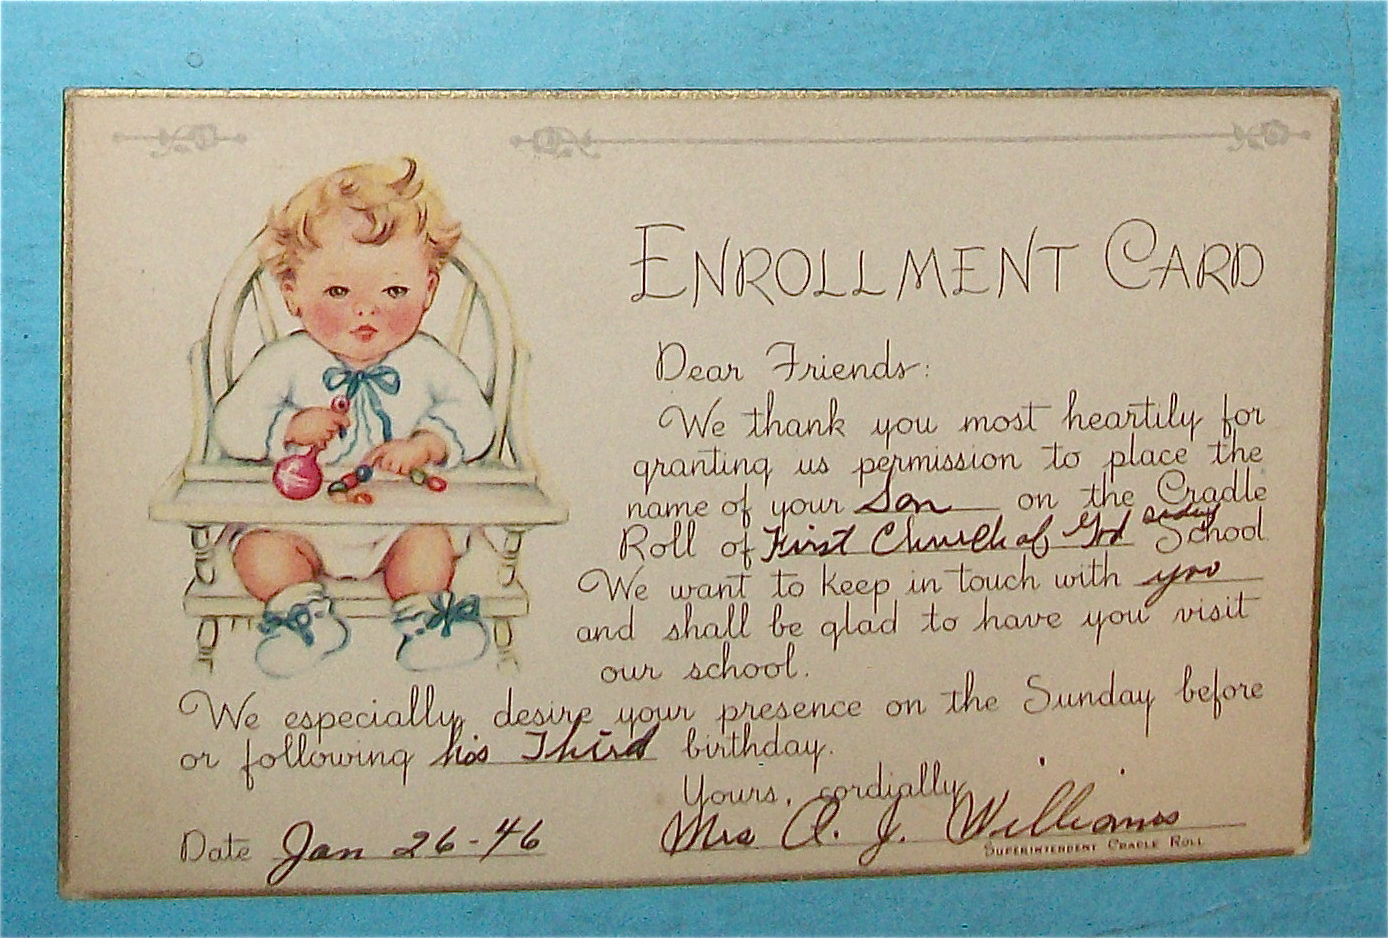 ENROLLMENT CARD
Dear Friends:
We thank you most heartily for
granting us permission to place the
name of your Son on the Cradle
Roll of First Church of God Sunday School
We want to keep in touch with you
and shall be glad to have you visit
our school.
We especially desire your presence on the Sunday before
or following his Third birthday.
Yours, cordially
Date Jan 26-46 Mrs A. J. Williams
SUPERINTENDENT CRADLE ROLL